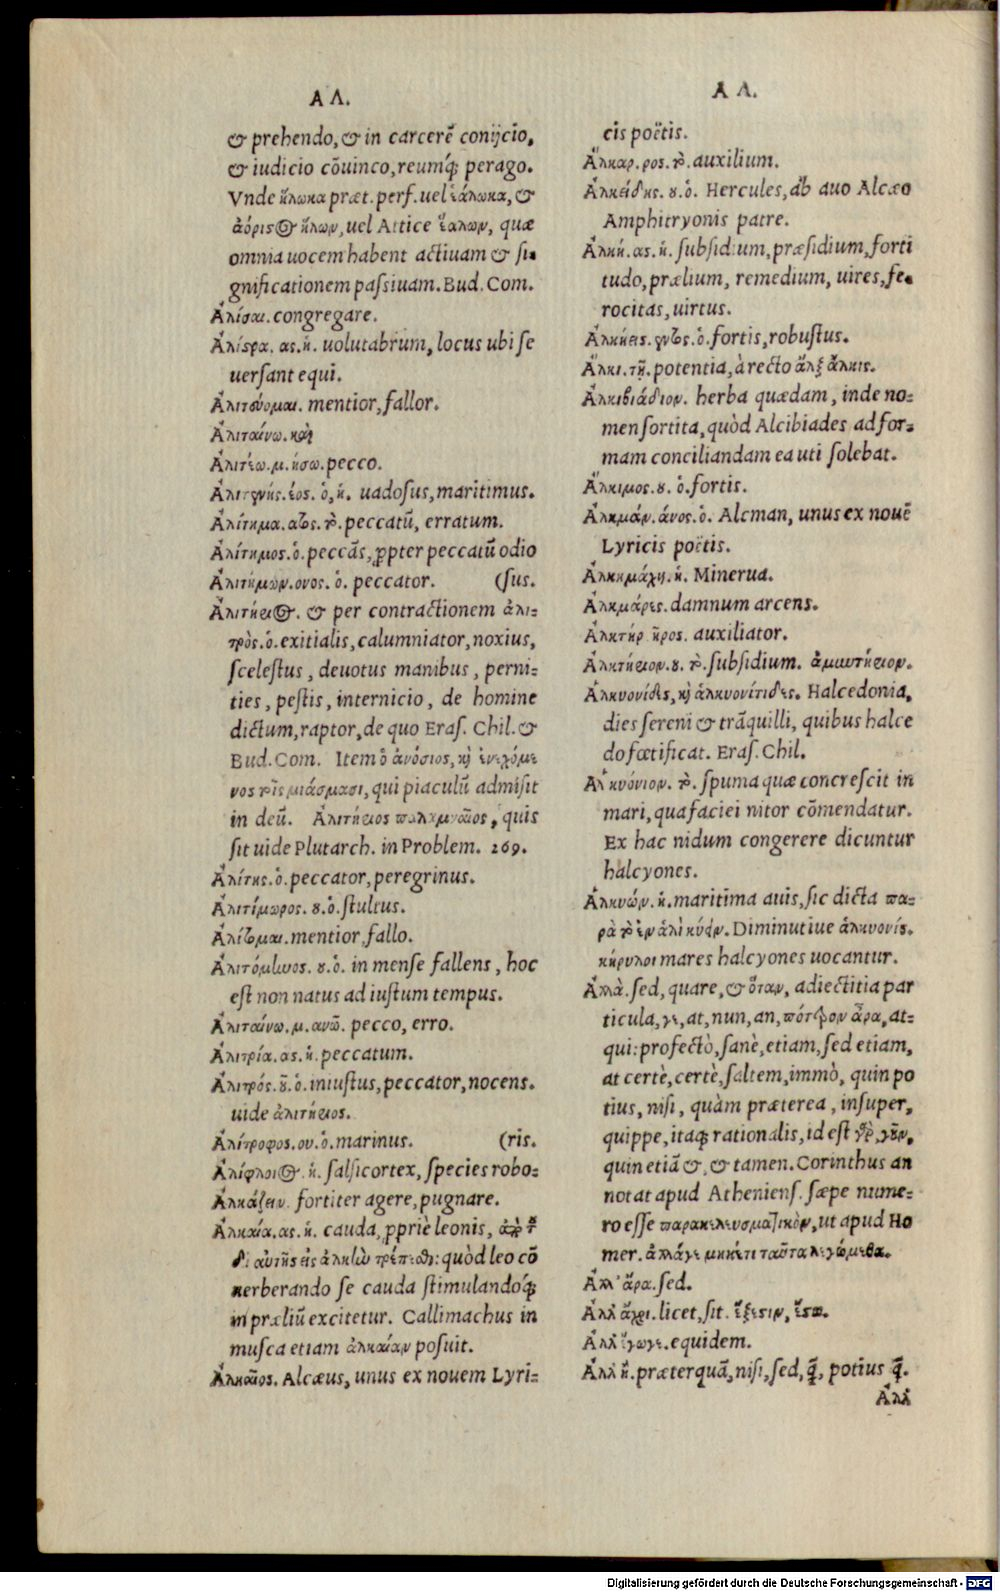 Α Λ.
& prehendo, & in carcerē conijcio,
& iudicio cōuinco, reumq́; perago.
Vnde ἥλωκα præt. perf. uel ἑάλωκα, &
ἀόριστος ἥλων, uel Attice ἑάλων, quæ
omnia uocem habent actiuam & si-
gnificationem passiuam. Bud. Com.
Ἀλίσαι. congregare.
Ἀλίστρα. ας. ἡ. uolutabrum, locus ubi se
uersant equi.
Ἀλιτεύομαι. mentior, fallor.
Ἀλιταίνω. καὶ
Ἀλιτέω. μ. ήσω. pecco.
Ἀλιτενής. έος. ὁ, ἡ. uadosus, maritimus.
Ἀλίτημα. ατος. τὸ. peccatū, erratum.
Ἀλίτημος. ὁ. peccās, ꝓpter peccatū odio
Ἀλιτήμων. ονος. ὁ. peccator. (sus.
Ἀλιτήριος. & per contractionem ἀλι-
τρὸς. ὁ. exitialis, calumniator, noxius,
scelestus, deuotus manibus, perni-
ties, pestis, internicio, de homine
dictum, raptor, de quo Eras. Chil. &
Bud. Com. Item ὁ ἀνόσιος, καὶ ἐνεχόμε
νος τοῖς μιάσμασι, qui piaculū admisit
in deū. Ἀλιτήριος παλαμναῖος, quis
sit uide Plutarch. in Problem. 269.
Ἀλίτης. ὁ. peccator, peregrinus.
Ἀλιτίμωρος. ου. ὁ. stultus.
Ἀλίζομαι. mentior, fallo.
Ἀλιτόμηνος. ου. ὁ. in mense fallens, hoc
est non natus ad iustum tempus.
Ἀλιταίνω. μ. ανῶ. pecco, erro.
Ἀλιτρία. ας. ἡ. peccatum.
Ἀλιτρός. οῦ. ὁ. iniustus, peccator, nocens.
uide ἀλιτήριος.
Ἀλίτροφος. ου. ὁ. marinus. (ris.
Ἀλίφλοιος. ἡ. salsicortex, species robo-
Ἀλκάζειν. fortiter agere, pugnare.
Ἀλκαία. ας. ἡ. cauda, ꝓpriè leonis,
δι' αὐτῆς εἰς ἀλκὴν τρέπεσθαι: quòd leo cō
uerberando se cauda stimulandoq́;
in præliū excitetur. Callimachus in
musca etiam ἀλκαίαν posuit.
Ἀλκαῖος. Alcæus, unus ex nouem Lyri-
Α Λ.
cis poëtis.
Ἄλκαρ. ρος. τὸ. auxilium.
Ἀλκείδης. ου. ὁ. Hercules, ab auo Alcæo
Amphitryonis patre.
Ἀλκή. ας. ἡ. subsidium, præsidium, forti
tudo, prælium, remedium, uires, fe-
rocitas, uirtus.
Ἀλκήεις. εντος. ὁ. fortis, robustus.
Ἄλκι. τῇ. potentia, à recto ἄλξ ἄλκις.
Ἀλκιβιάδιον. herba quædam, inde no-
men sortita, quòd Alcibiades ad for-
mam conciliandam ea uti solebat.
Ἄλκιμος. ου. ὁ. fortis.
Ἀλκμάν. άνος. ὁ. Alcman, unus ex nouē
Lyricis poëtis.
Ἀλκημάχη. ἡ. Minerua.
Ἀλκμάρες. damnum arcens.
Ἀλκτήρ ῆρος. auxiliator.
Ἀλκτήριον. ου. τὸ. subsidium. ἀμυντήριον.
Ἀλκυονίδες, καὶ ἀλκυονίτιδες. Halcedonia,
dies sereni & trāquilli, quibus halce
do fœtificat. Eras. Chil.
Ἀλκυόνιον. τὸ. spuma quæ concrescit in
mari, qua faciei nitor cōmendatur.
Ex hac nidum congerere dicuntur
halcyones.
Ἀλκυών. ἡ. maritima auis, sic dicta πα-
ρὰ τὸ ἐν ἁλὶ κύειν. Diminutiue ἀλκυονίς.
κήρυλοι mares halcyones uocantur.
Ἀλλὰ. sed, quare, & ὅταν, adiectitia par
ticula, γε, at, nun, an, πότερον ἆρα, at-
qui: profectò, sanè, etiam, sed etiam,
at certè, certè, saltem, immò, quin po
tius, nisi, quàm præterea, insuper,
quippe, itaq; rationalis, id est γὰρ, γοῦν,
quin etiā &, & tamen. Corinthus an
notat apud Atheniens. sæpe nume-
ro esse παρακελευσματικὸν, ut apud Ho
mer. ἀλλ' ἄγε μηκέτι ταῦτα λεγώμεθα.
Ἀλλ' ἄρα. sed.
Ἀλλ' ἄχρι. licet, sit. ἔξεστιν, ἔστω.
Ἀλλ' ἔγωγε. equidem.
Ἀλλ' ἢ. præterquā, nisi, sed, q̄, potius q̄.
Ἀλλ'
Digitalisierung gefördert durch die Deutsche Forschungsgemeinschaft - DFG